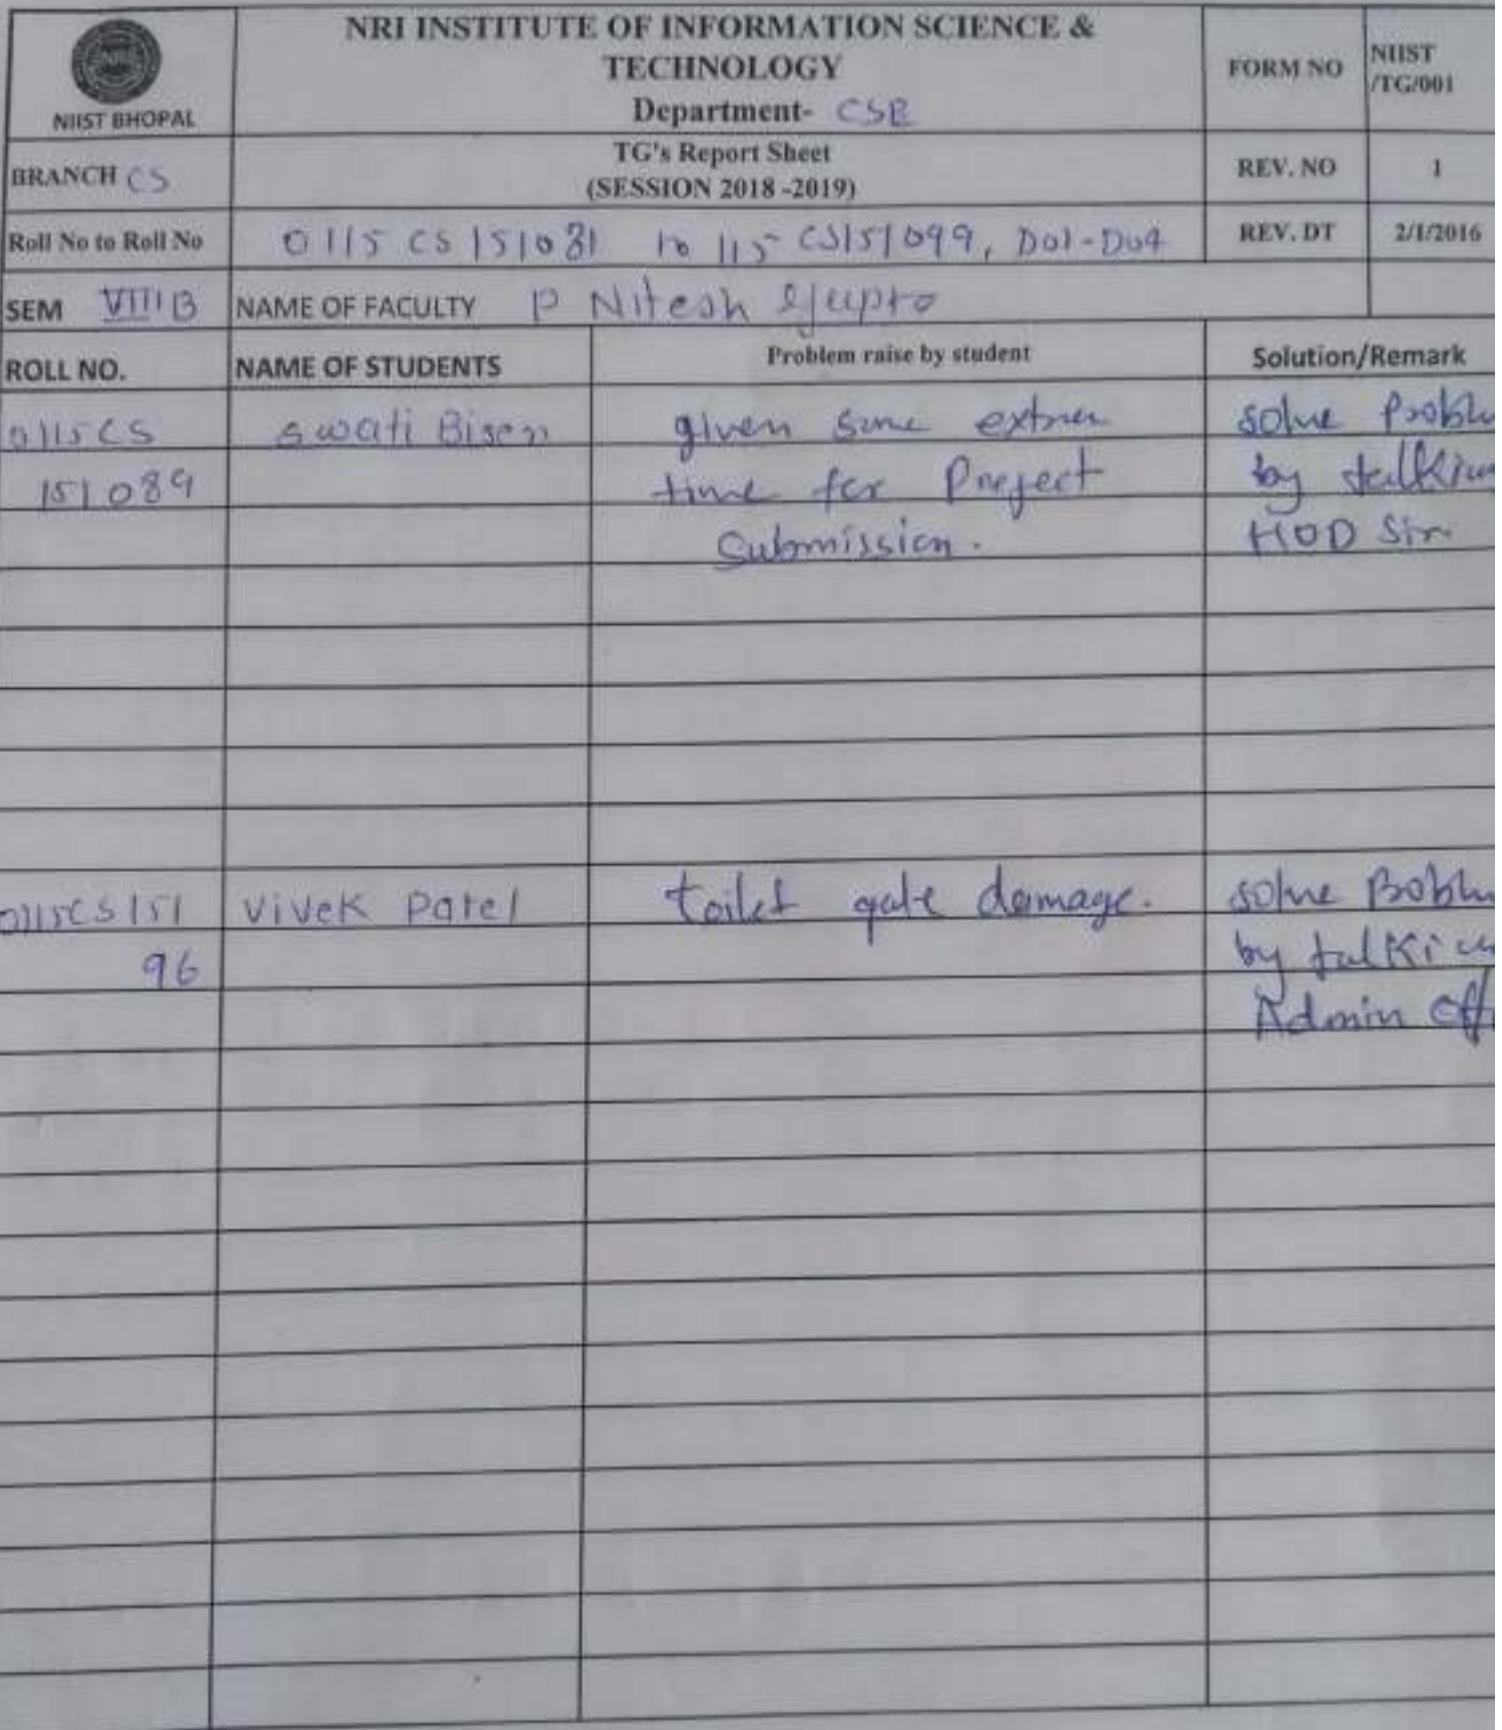 NRI INSTITUTE OF INFORMATION SCIENCE &
TECHNOLOGY
Department- CSE
FORM NO
NIIST
/TG/001
NIIST BHOPAL
BRANCH CS
TG's Report Sheet
(SESSION 2018 -2019)
REV. NO
1
Roll No to Roll No
0115 CS 151081 to 115 CS151099, D01-D04
REV. DT
2/1/2016
SEM VIII B
NAME OF FACULTY P Nitesh Gupta
ROLL NO.
NAME OF STUDENTS
Problem raise by student
Solution/Remark
0115CS
swati Bisen
given some
solve
151089
time for Project
by
Submission.
HOD Sir.
0115CS151
Vivek Patel
toilet gate damage.
solve
96
by
Admin